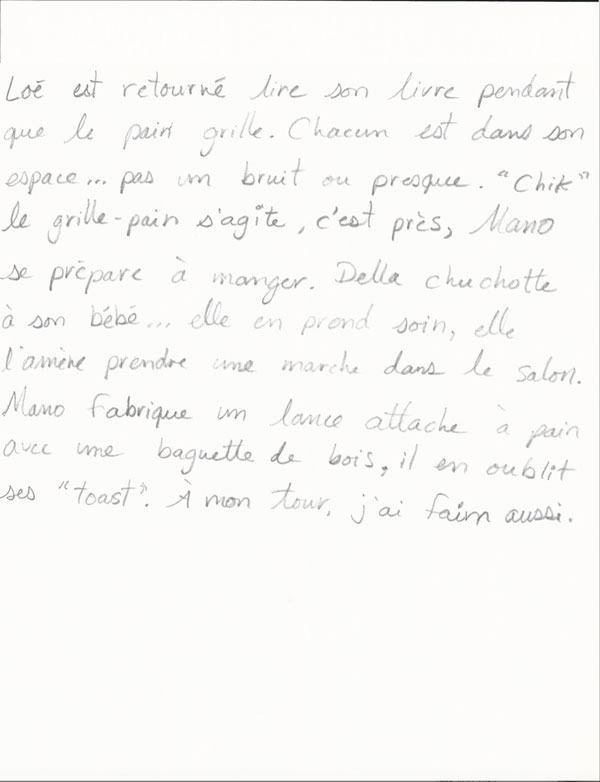 Loé est retourné lire son livre pendant
que le pain grille. Chacun est dans son
espace... pas un bruit ou presque. "Chik"
le grille-pain s'agite, c'est près, Mano
se prépare à manger. Della chuchotte
à son bébé... elle en prend soin, elle
l'amène prendre une marche dans le salon.
Mano fabrique un lance attache à pain
avec une baguette de bois, il en oublit
ses "toast". À mon tour, j'ai faim aussi.